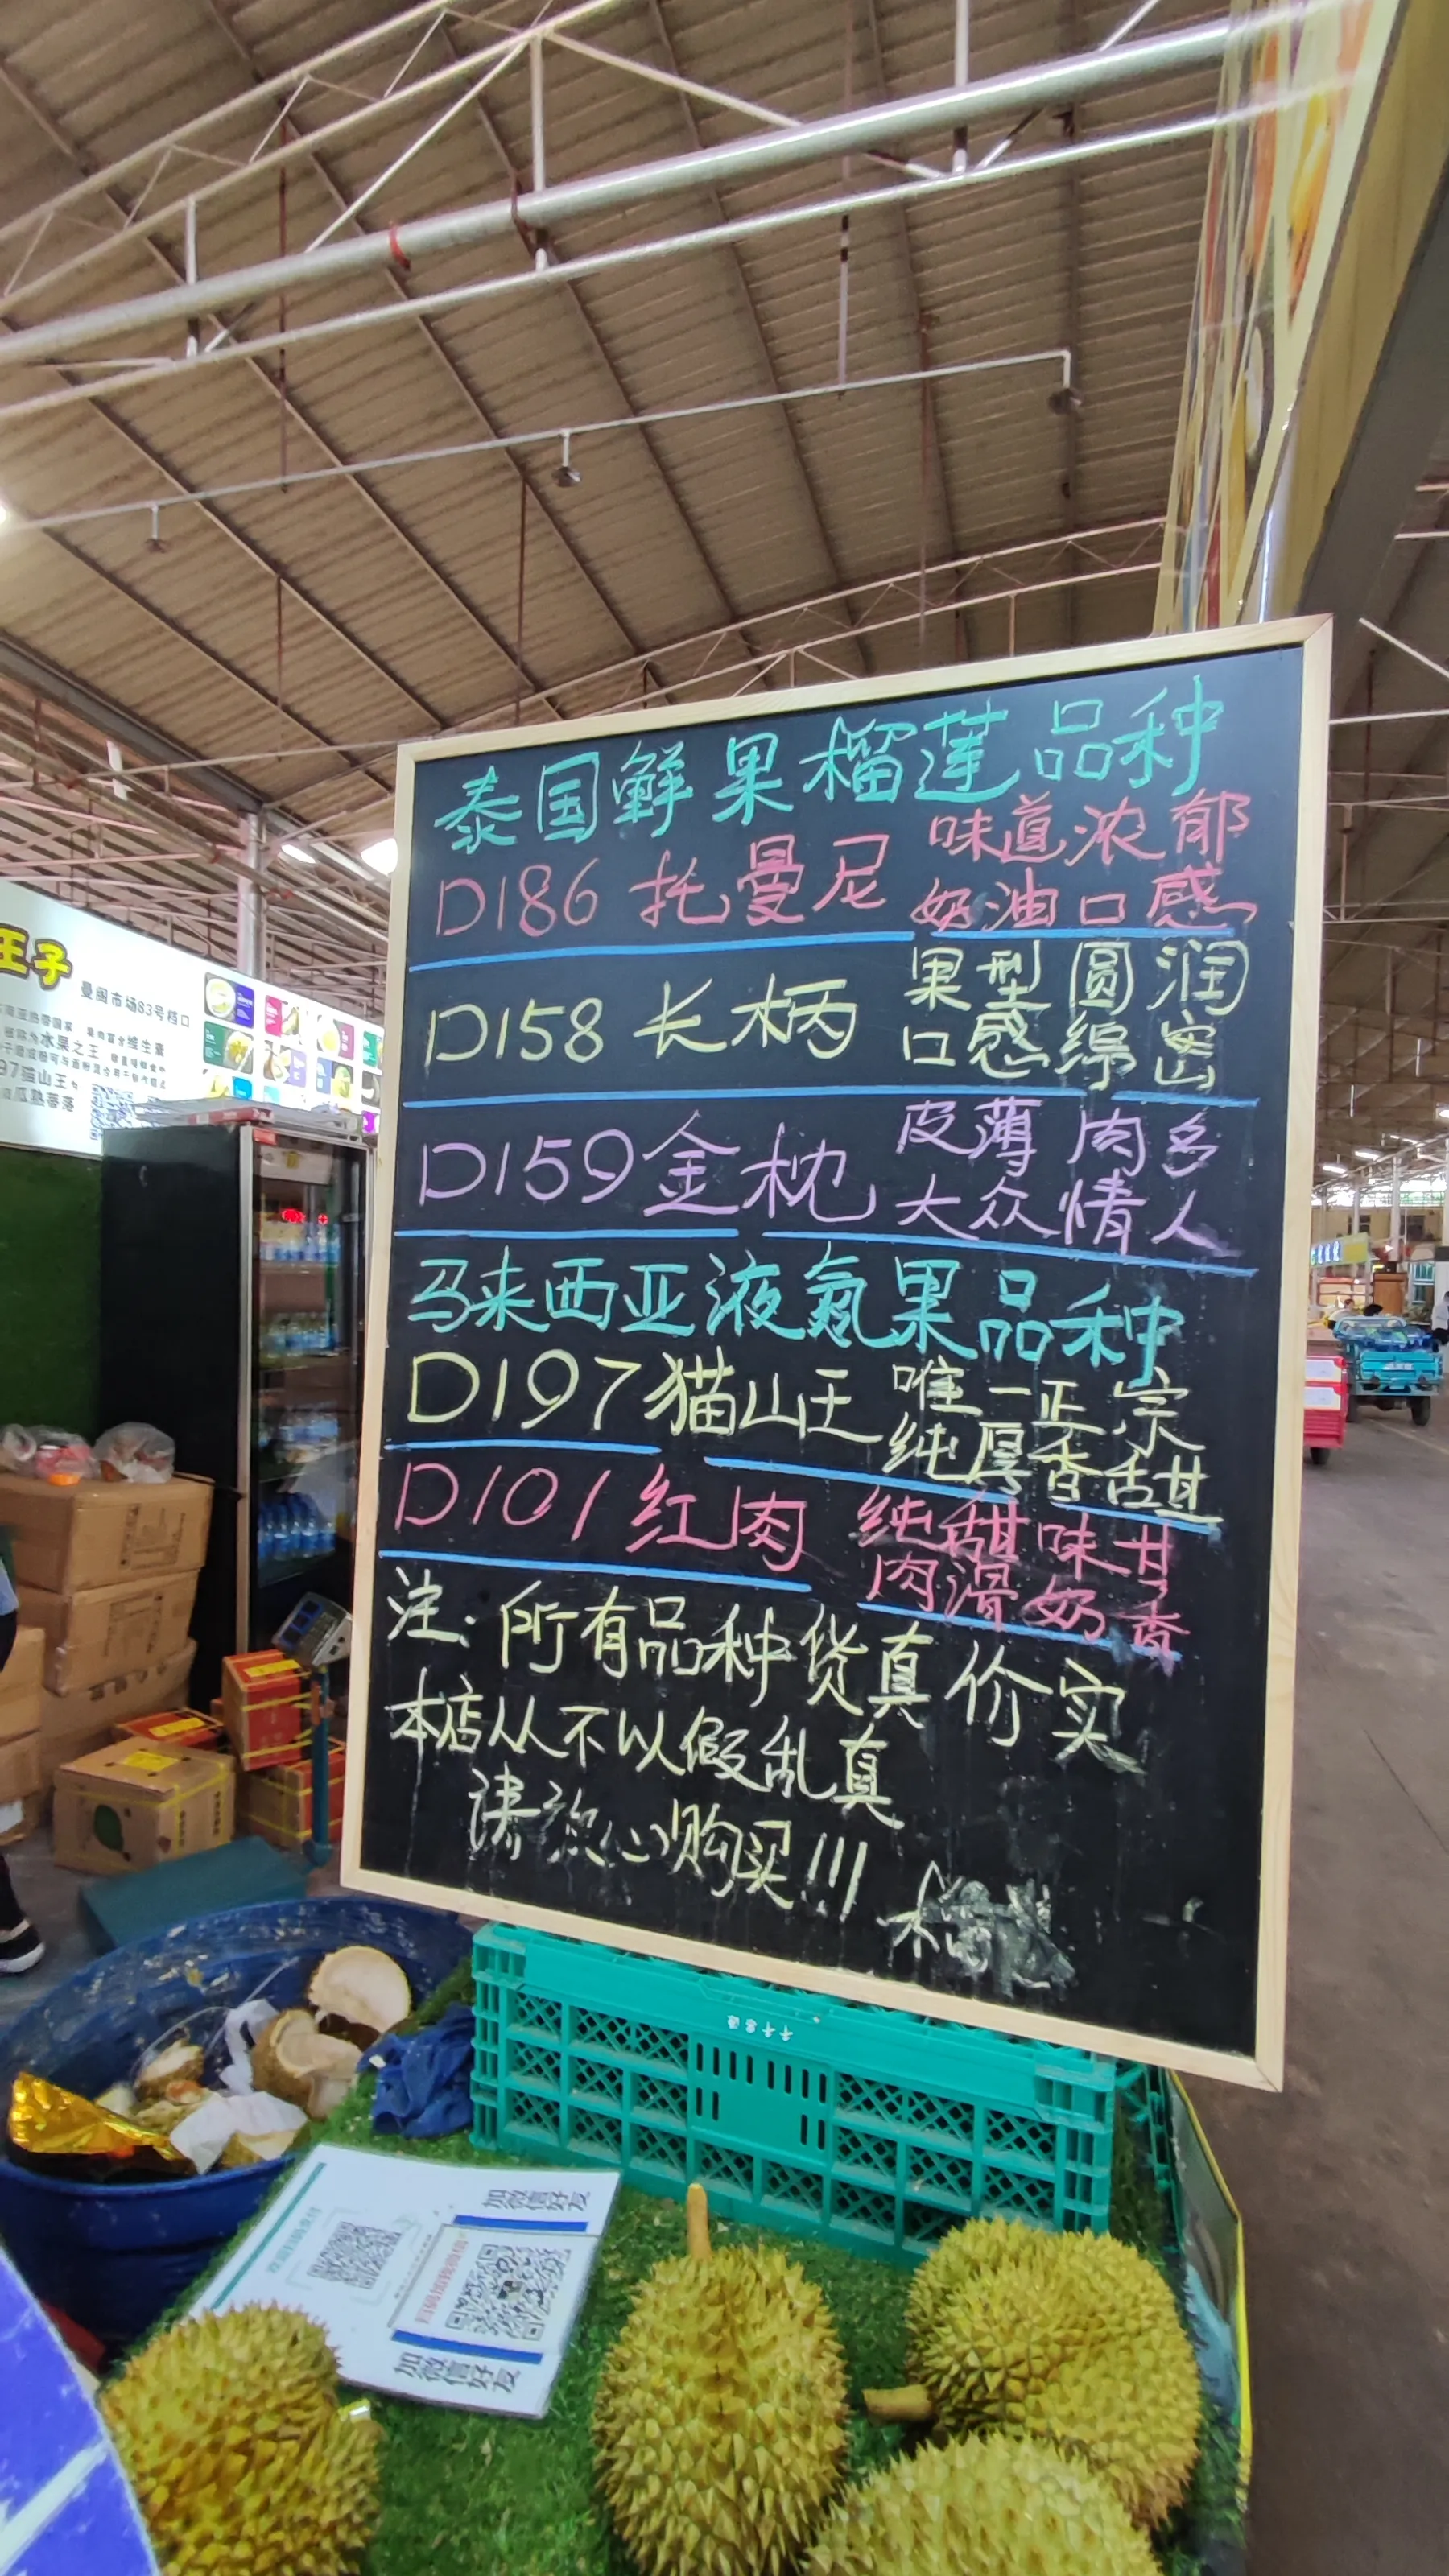 泰国鲜果榴莲品种
D186 托曼尼 味道浓郁
奶油口感
D158 长柄 果型圆润
口感绵密
D159 金枕 皮薄肉多
大众情人
马来西亚液氮果品种
D197 猫山王 唯一正宗
纯厚香甜
D101 红肉 纯甜味甘
肉滑奶香
注:所有品种货真价实
本店从不以假乱真
请放心购买!!!
王子
曼闽市场83号档口
被称为水果之王
97猫山王
瓜熟蒂落
加微信好友
加微信好友